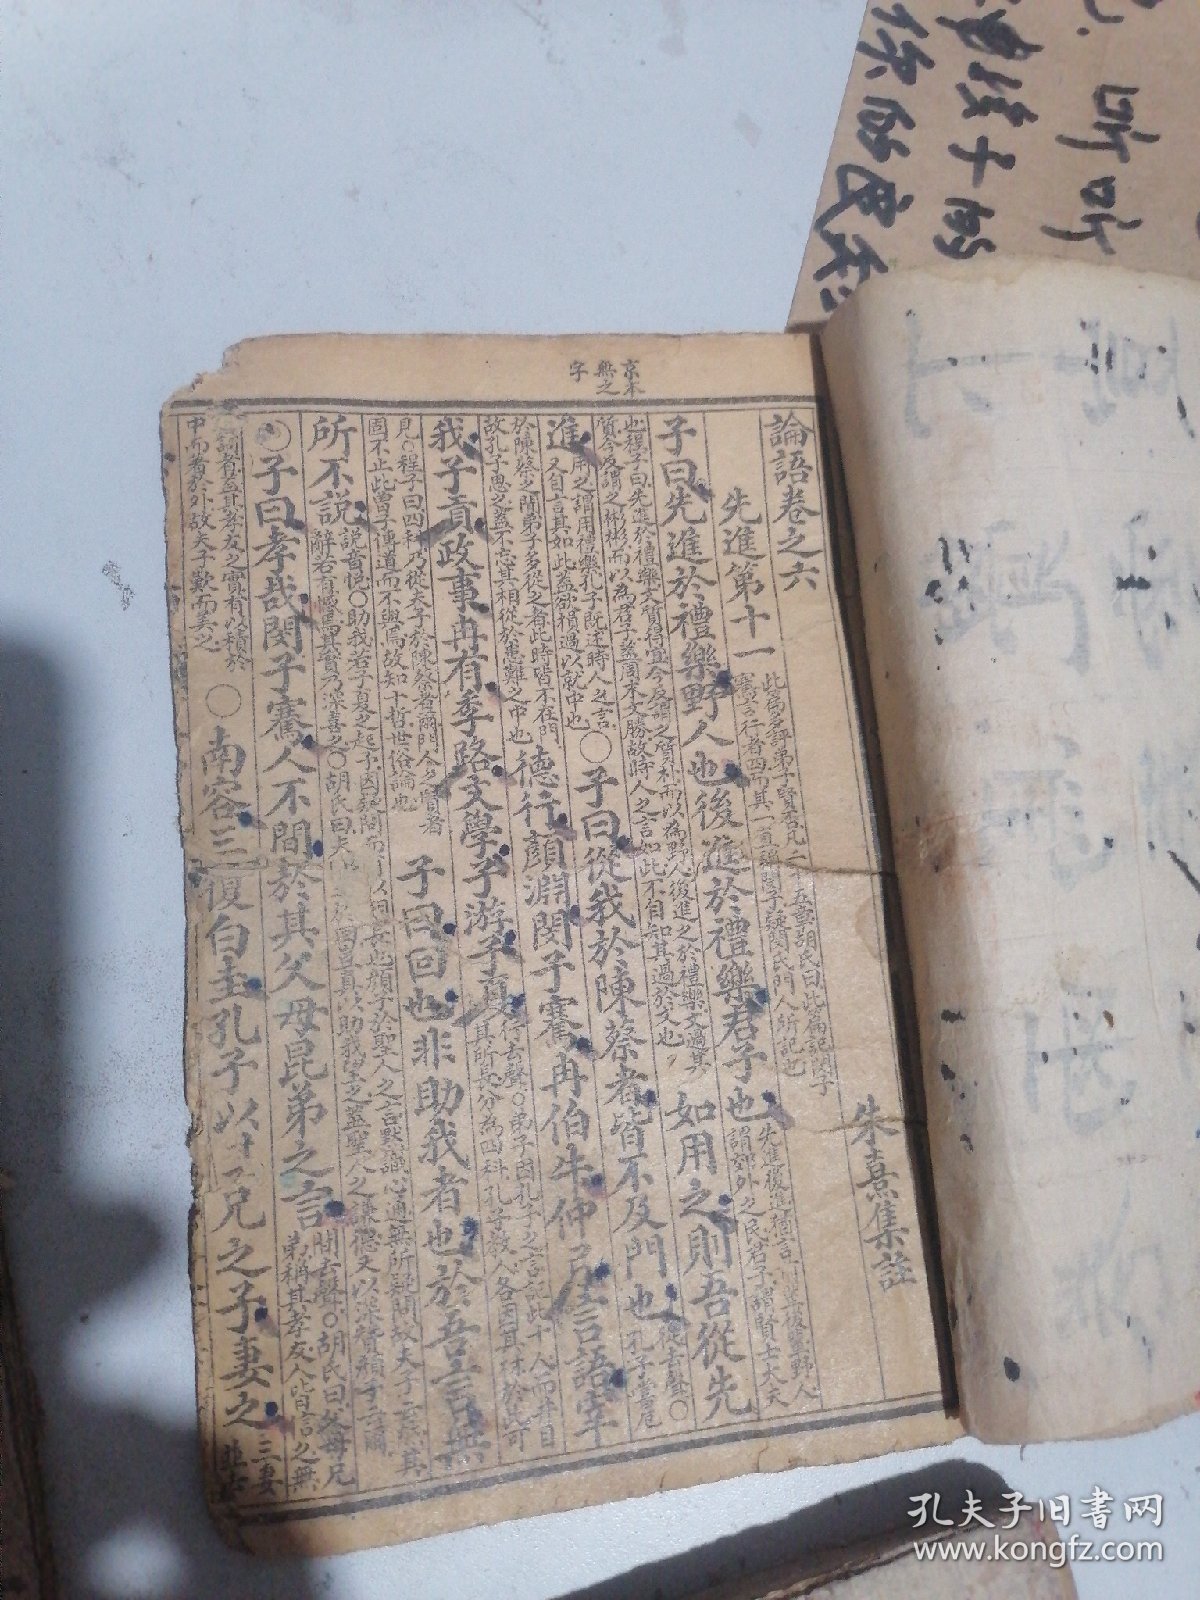 京本
無之
字
論語卷之六
朱熹集註
先進第十一
此篇多評弟子賢否凡二十五章胡氏曰此篇記閔子
騫言行者四而其一直稱閔子疑閔氏門人所記也
子曰先進於禮樂野人也後進於禮樂君子也
謂郊外之民君子謂賢士大夫
也程子曰先進於禮樂文質得宜今反謂之質朴而以為野人後進之於禮樂文過其
質今反謂之彬彬而以為君子蓋周末文勝故時人之言如此不自知其過於文也
如用之則吾從先
進
用之謂用禮樂孔子既述時人之言
又自言其如此蓋欲損過以就中也
○子曰從我於陳蔡者皆不及門也
從去聲○
孔子嘗厄
於陳蔡之間弟子多從之者此時皆不在門
故孔子思之蓋不忘其相從於患難之中也
德行顏淵閔子騫冉伯牛仲弓言語宰
我子貢政事冉有季路文學子游子夏
行去聲○弟子因孔子之言記此十人而并目
其所長分為四科孔子教人各因其材於此可
見○程子曰四科乃從夫子於陳蔡者爾門人之賢者
固不止此曾子傳道而不與焉故知十哲世俗論也
子曰回也非助我者也於吾言無
所不說
說音悅○助我若子夏之起予因疑問而
顏子於聖人之言默識心通無所疑問故夫子云然其
辭若有憾焉其實乃深喜之○胡氏曰夫
真以助我望之蓋聖人之謙德又以深贊顏子云爾
○子曰孝哉閔子騫人不間於其父母昆弟之言
間去聲○胡氏曰父母兄
弟稱其孝友人皆信之無
其孝友之實有以積於
中而著於外故夫子歎而美之
○南容三復白圭孔子以其兄之子妻之
三妻
並去
孔夫子旧书网
www.kongfz.com